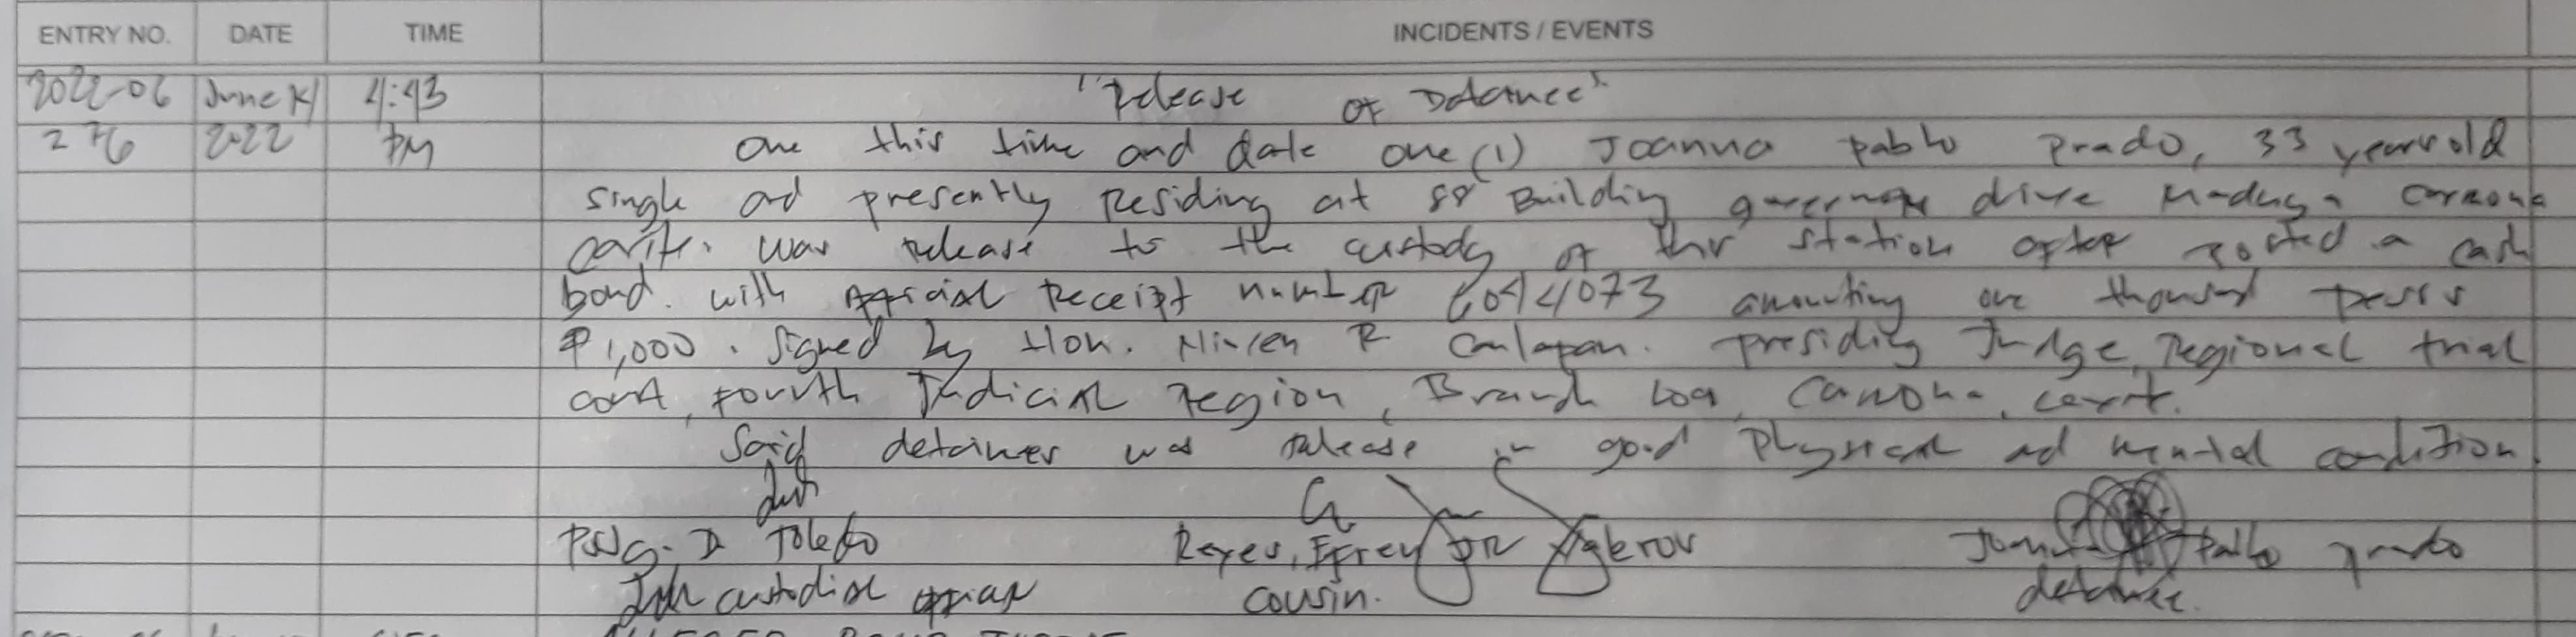 ENTRY NO. DATE TIME INCIDENTS / EVENTS
2022-06 June 4:43 "Release of Detainee"
276 2022 PM One this time and date one (1) Joanna Pablo Prado, 33 years old
single and presently Residing at 88 Building governors drive Maduya Carmona
cavite. was release to the custody of thir station after posted a cash
bond. with official Receipt number amounting one thousand pesos
₱1,000. Signed by Hon. R presiding Judge, Regional trial
court, Fourth Judicial region, Branch Carmona, cavite.
Said detainee was release in good Physical and mental condition.
D Toledo Reyes, Efren JR Joanna Pablo prado
custodial officer cousin. detainee.